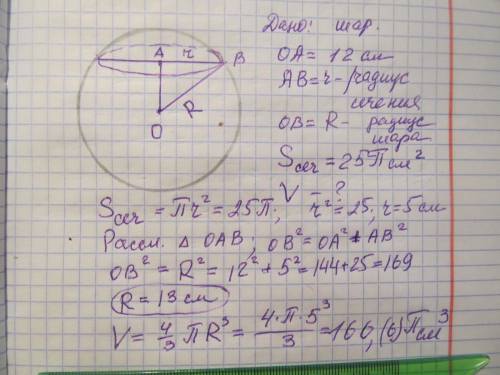 Дано: шар.
A
r
B
O
R
OA = 12 см
AB = r - радиус
сечения
OB = R - радиус
шара
Sсеч = 25π см²
V - ?
Sсеч = πr² = 25π, r² = 25, r = 5 см
Рассм. Δ OAB; OB² = OA² + AB²
OB² = R² = 12² + 5² = 144 + 25 = 169
R = 13 см
V = 4/3 πR³ = 4·π·5³/3 = 166,(6)π см³